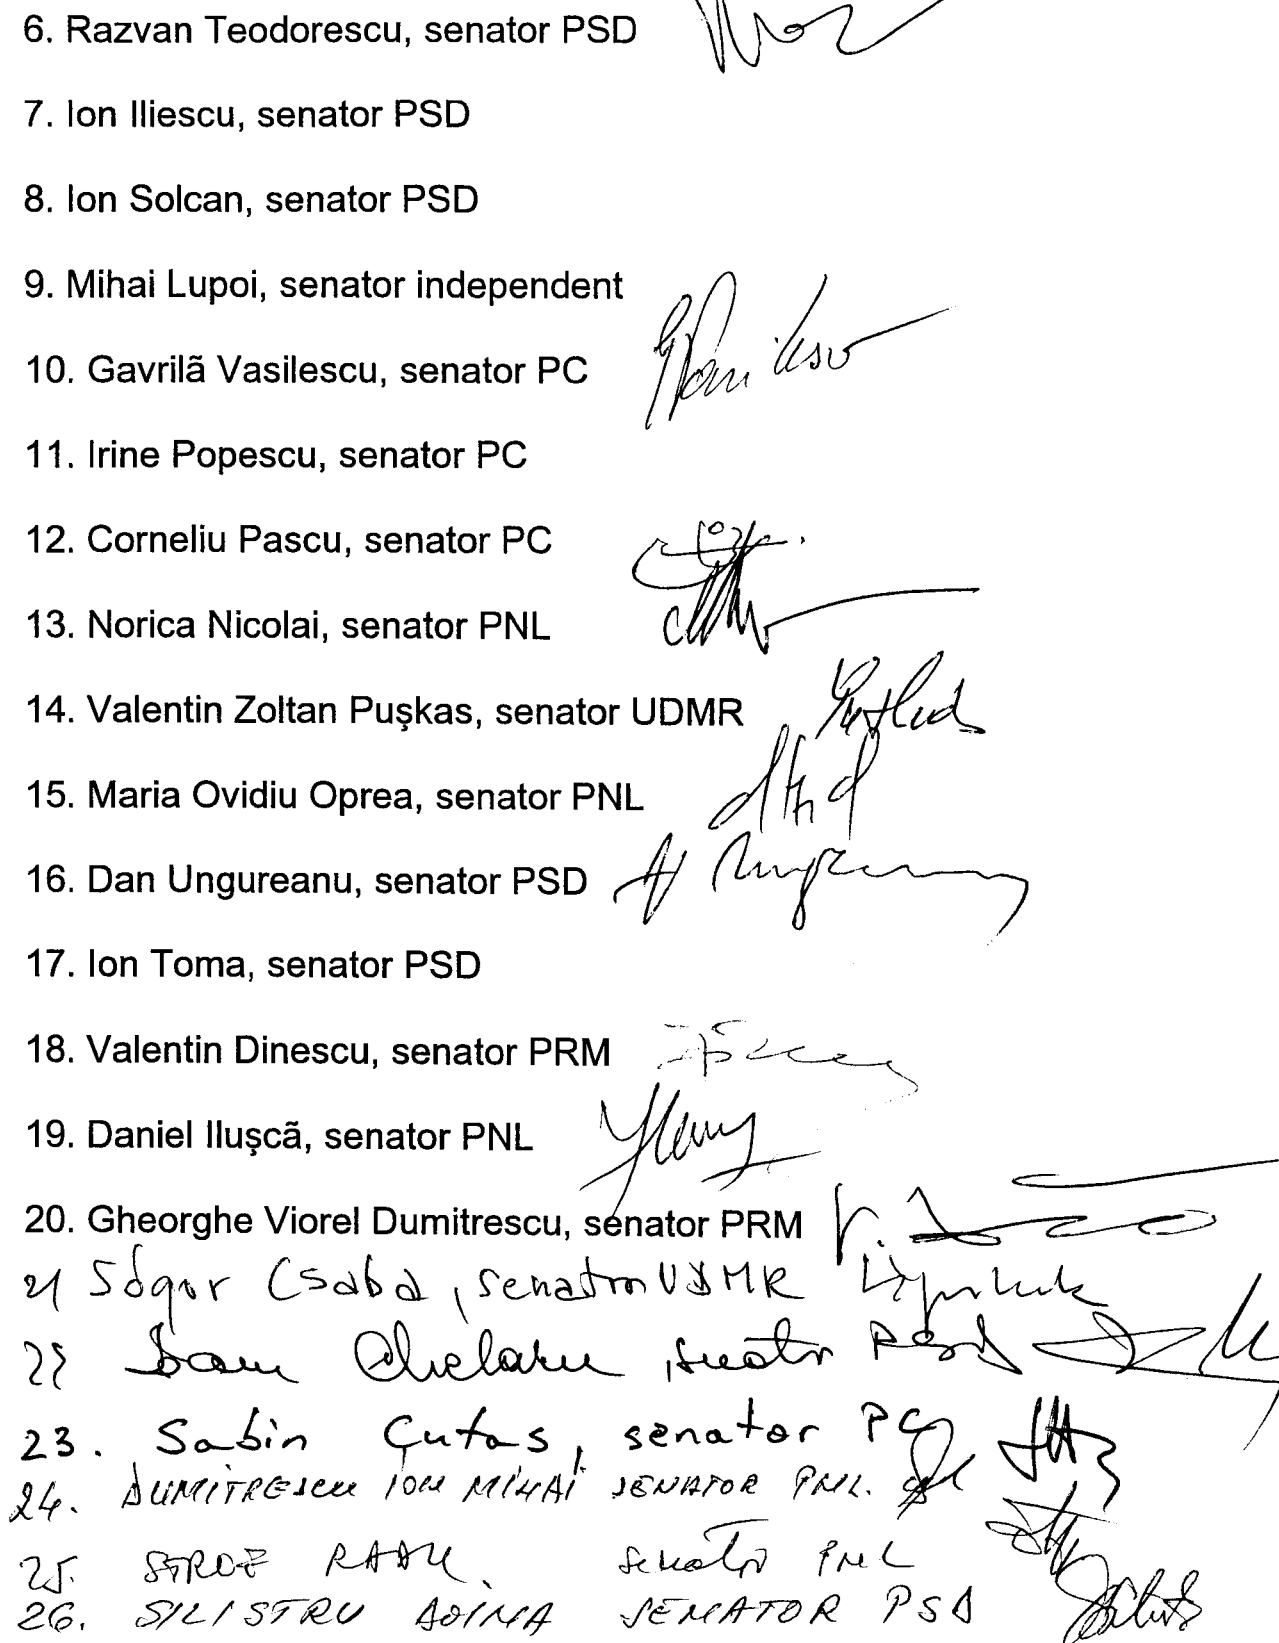 6. Razvan Teodorescu, senator PSD
7. Ion Iliescu, senator PSD
8. Ion Solcan, senator PSD
9. Mihai Lupoi, senator independent
10. Gavrilã Vasilescu, senator PC
11. Irine Popescu, senator PC
12. Corneliu Pascu, senator PC
13. Norica Nicolai, senator PNL
14. Valentin Zoltan Puşkas, senator UDMR
15. Maria Ovidiu Oprea, senator PNL
16. Dan Ungureanu, senator PSD
17. Ion Toma, senator PSD
18. Valentin Dinescu, senator PRM
19. Daniel Iluşcã, senator PNL
20. Gheorghe Viorel Dumitrescu, senator PRM
21 Sógor Csaba, senator UDMR
22 senator PSD
23. Sabin Cutaș, senator PC
24. DUMITRESCU ION MIHAI SENATOR PNL.
25. STROE RADU senator PNL
26. SILISTRU DOINA SENATOR PSD